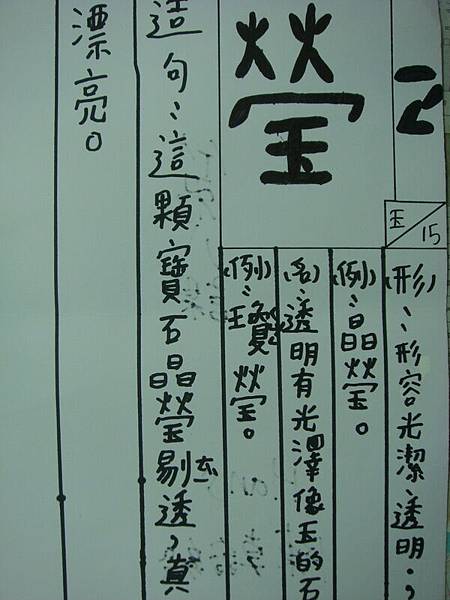 瑩
ㄧㄥ
玉/15
(形)：形容光潔、透明，
(例)：晶瑩。
(名)：透明有光澤像玉的石
(例)：瓊瑩。
造句：這顆寶石晶瑩剔透，真
漂亮。